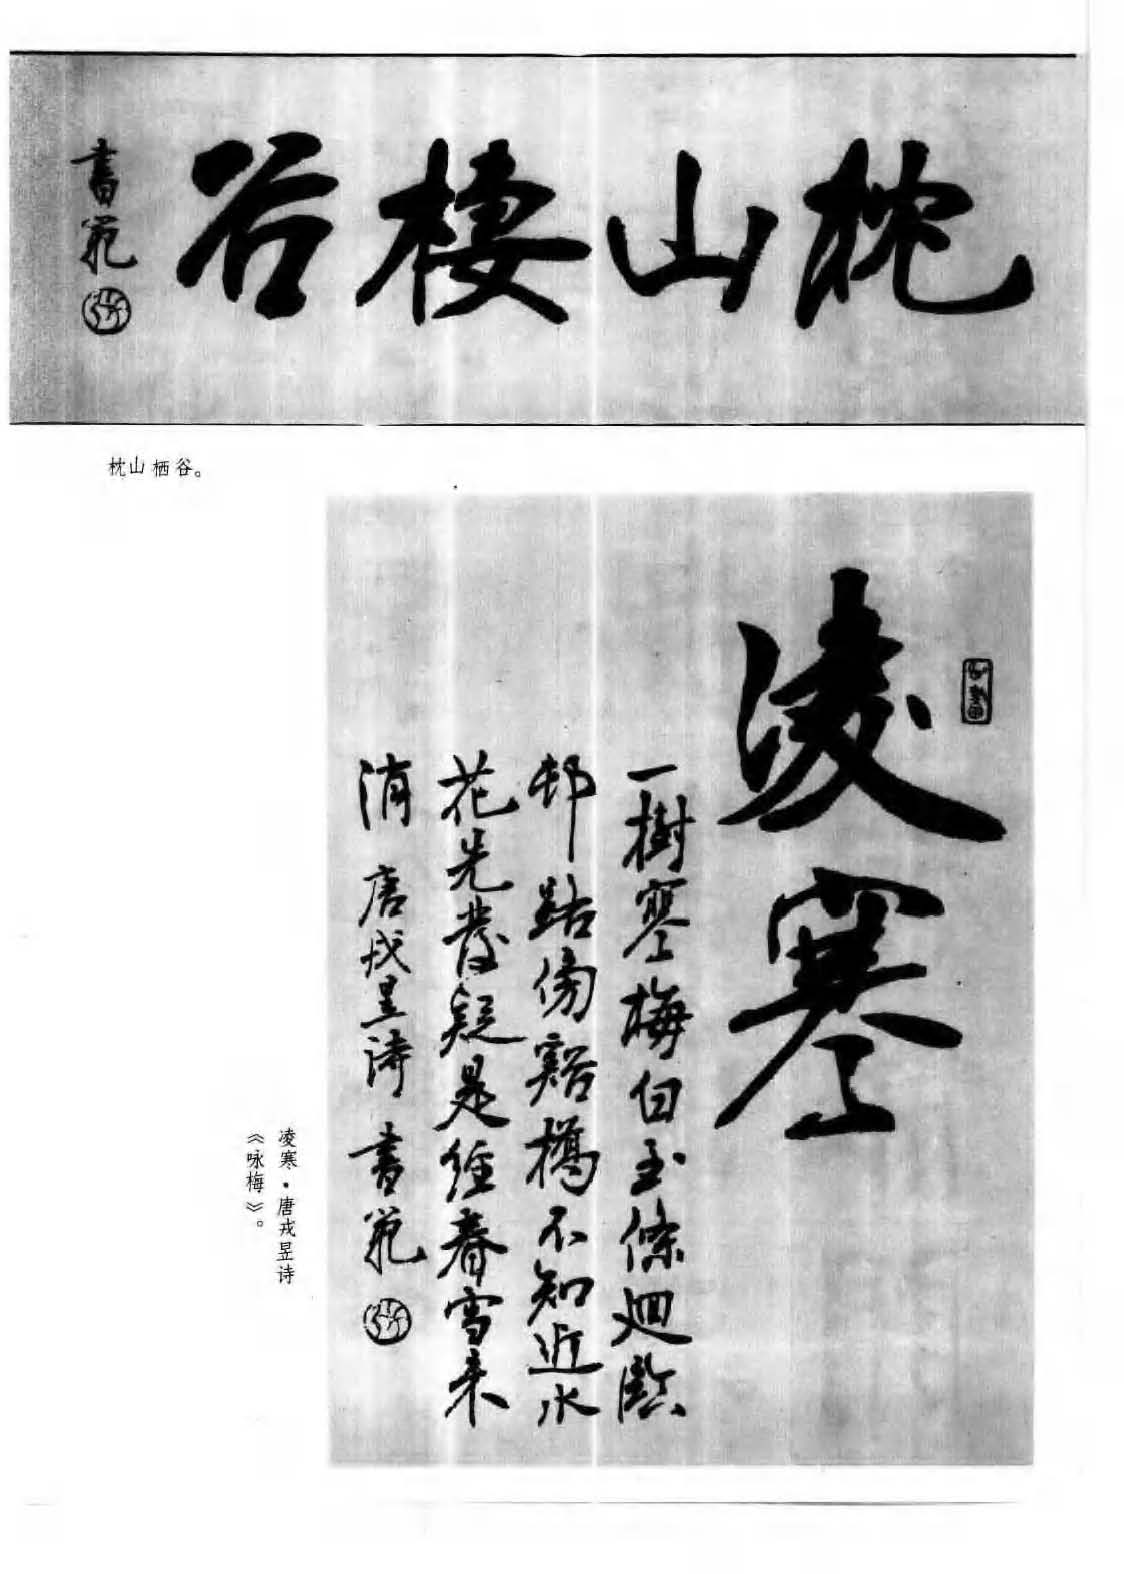 枕山棲谷
書范
枕山栖谷。
凌寒
一樹寒梅白玉條迴臨
邨路傍谿橋不知近水
花先發疑是經春雪未
消 唐戎昱詩 書范
凌寒·唐戎昱诗
《咏梅》。